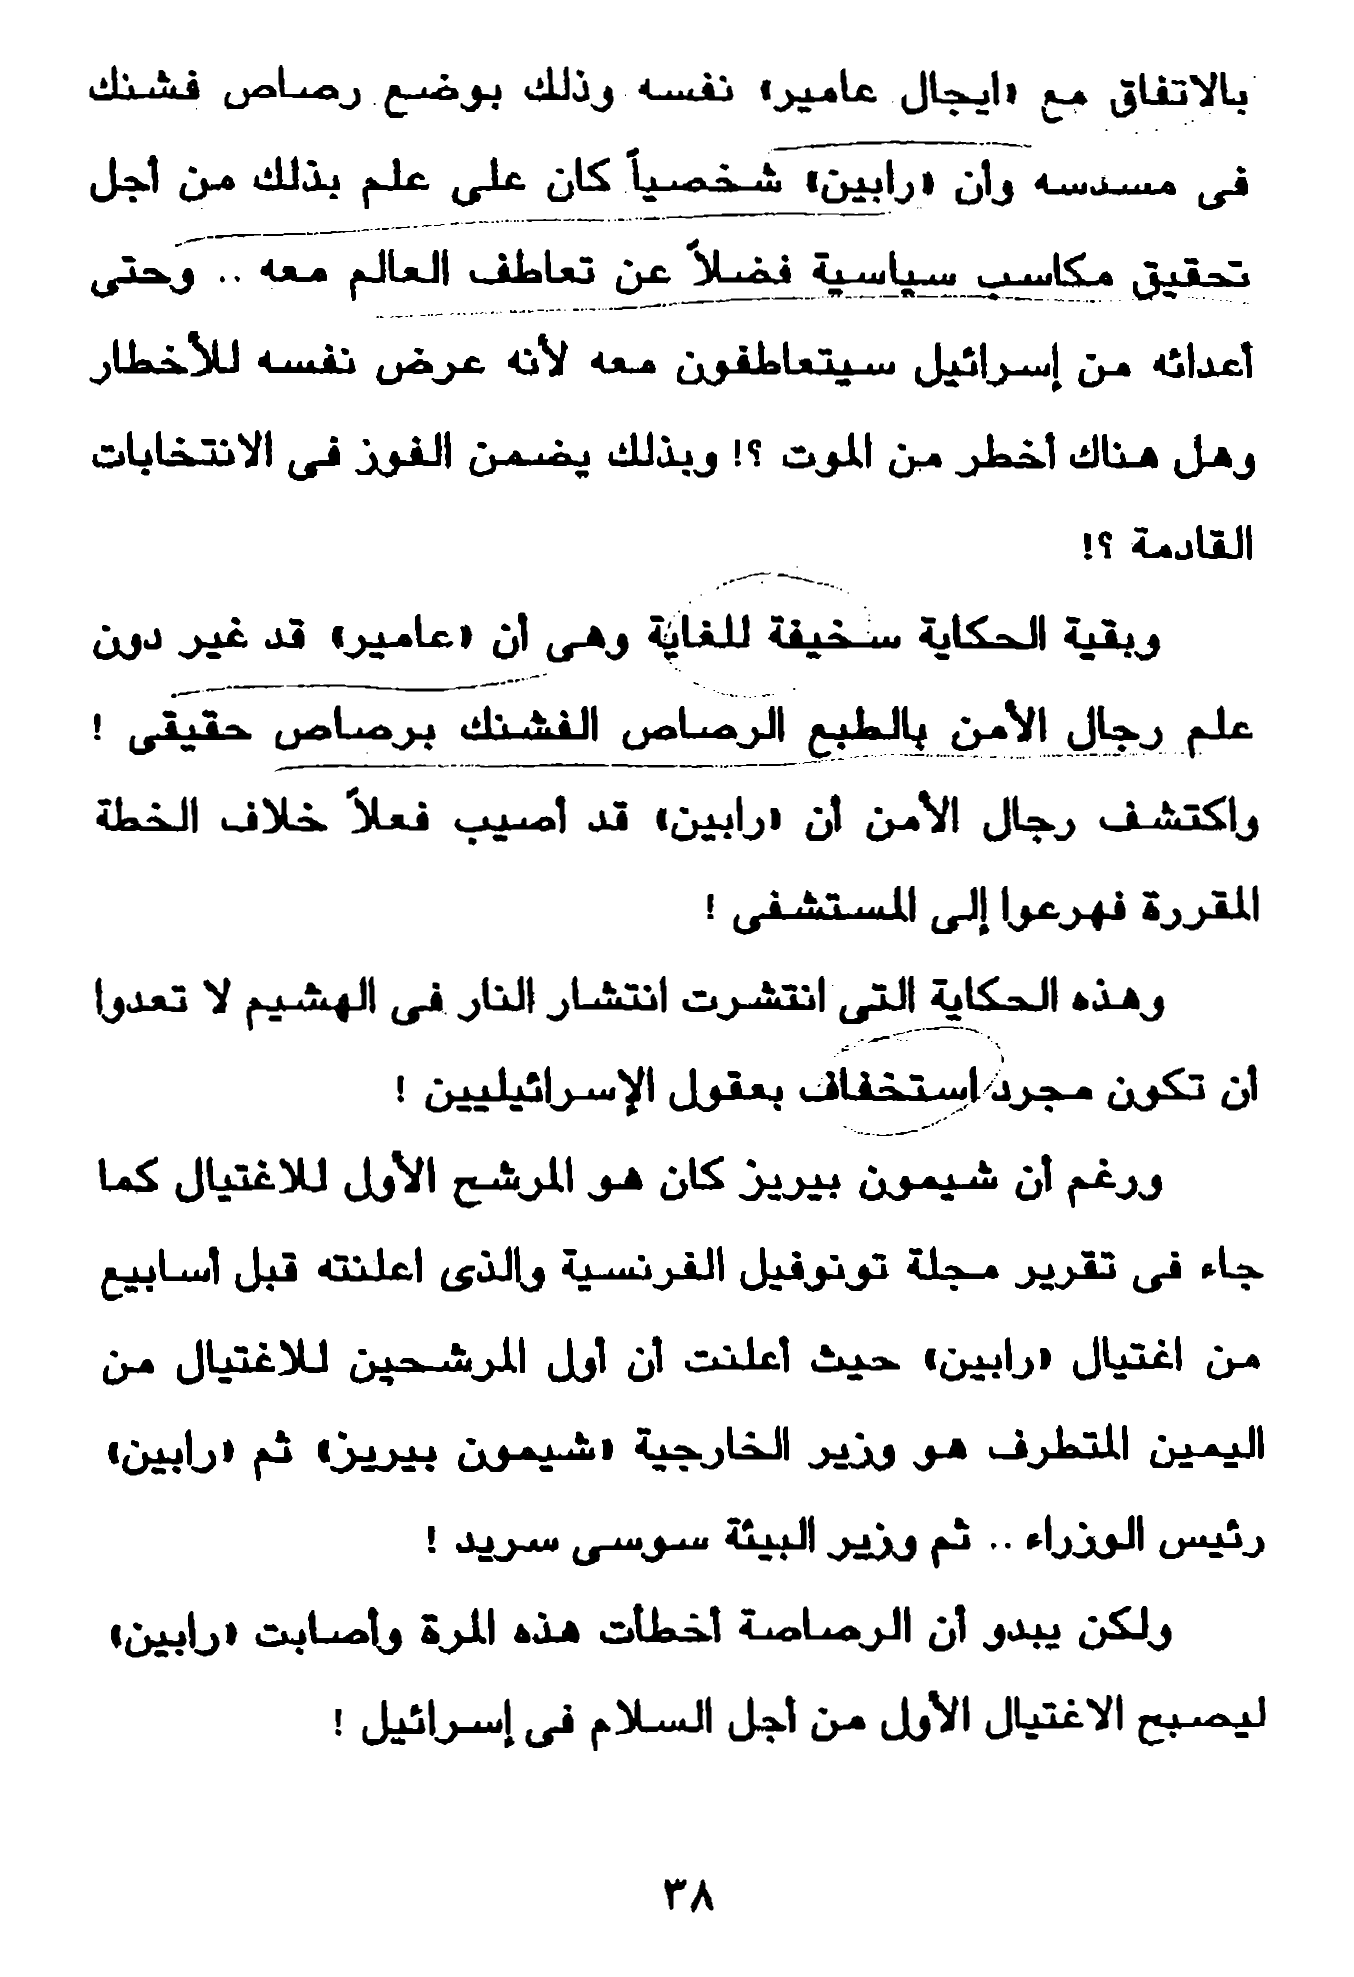 بالاتفاق مع «ايجال عامير» نفسه وذلك بوضع رصاص فشنك
فى مسدسه وأن «رابين» شخصياً كان على علم بذلك من أجل
تحقيق مكاسب سياسية فضلاً عن تعاطف العالم معه .. وحتى
أعدائه من إسرائيل سيتعاطفون معه لأنه عرض نفسه للأخطار
وهل هناك أخطر من الموت ؟! وبذلك يضمن الفوز فى الانتخابات
القادمة ؟!
وبقية الحكاية سخيفة للغاية وهى أن «عامير» قد غير دون
علم رجال الأمن بالطبع الرصاص الفشنك برصاص حقيقى !
واكتشف رجال الأمن أن «رابين» قد أصيب فعلاً خلاف الخطة
المقررة فهرعوا إلى المستشفى !
وهذه الحكاية التى انتشرت انتشار النار فى الهشيم لا تعدوا
أن تكون مجرد استخفاف بعقول الإسرائيليين !
ورغم أن شيمون بيريز كان هو المرشح الأول للاغتيال كما
جاء فى تقرير مجلة تونوفيل الفرنسية والذى اعلنته قبل أسابيع
من اغتيال «رابين» حيث أعلنت أن أول المرشحين للاغتيال من
اليمين المتطرف هو وزير الخارجية «شيمون بيريز» ثم «رابين»
رئيس الوزراء .. ثم وزير البيئة سوسى سريد !
ولكن يبدو أن الرصاصة أخطأت هذه المرة وأصابت «رابين»
ليصبح الاغتيال الأول من أجل السلام فى إسرائيل !
٣٨